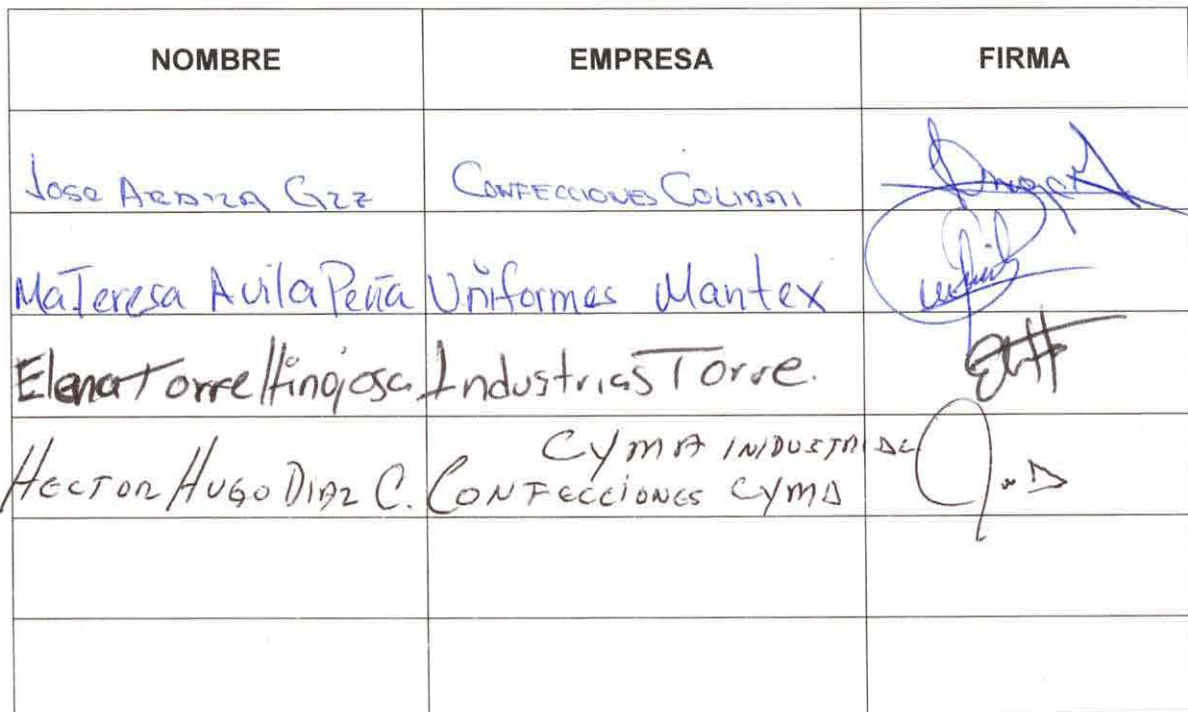 NOMBRE EMPRESA FIRMA
Jose Gzz CONFECCIONES
Ma Teresa Avila Peña Uniformes Mantex
Elena Torre Hinojosa Industrias Torre.
CYMA
HECTOR HUGO DIAZ C. CONFECCIONES CYMA